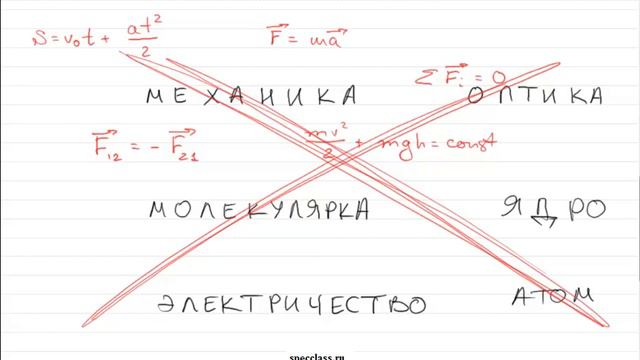 S = v₀t + at²/2
F⃗ = ma⃗
Σ F⃗ᵢ = 0
МЕХАНИКА
ОПТИКА
F⃗₁₂ = − F⃗₂₁
mv²/2 + mgh = const
МОЛЕКУЛЯРКА
ЯДРО
ЭЛЕКТРИЧЕСТВО
АТОМ
specclass.ru